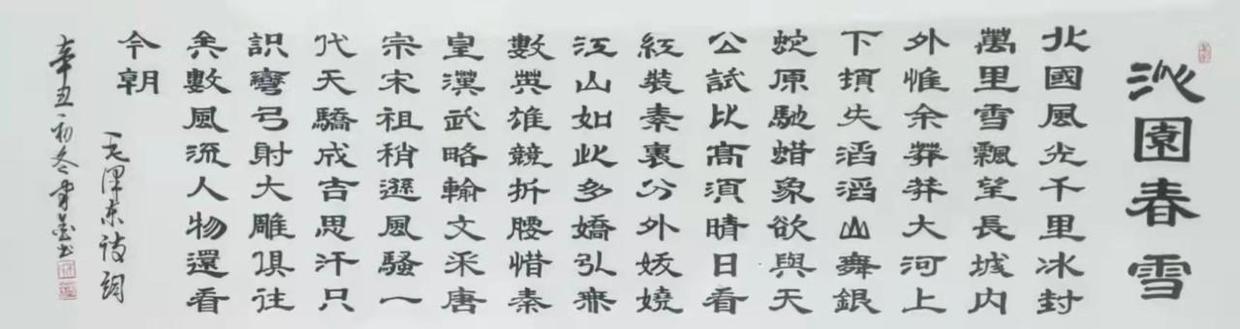 沁園春雪
北國風光千里冰封
萬里雪飄望長城内
外惟余莽莽大河上
下頓失滔滔山舞銀
蛇原馳蜡象欲與天
公試比高須晴日看
紅裝素裹分外妖嬈
江山如此多嬌引無
數英雄競折腰惜秦
皇漢武略輸文采唐
宗宋祖稍遜風騷一
代天驕成吉思汗只
識彎弓射大雕俱往
矣數風流人物還看
今朝
毛澤东詩詞
辛丑初冬